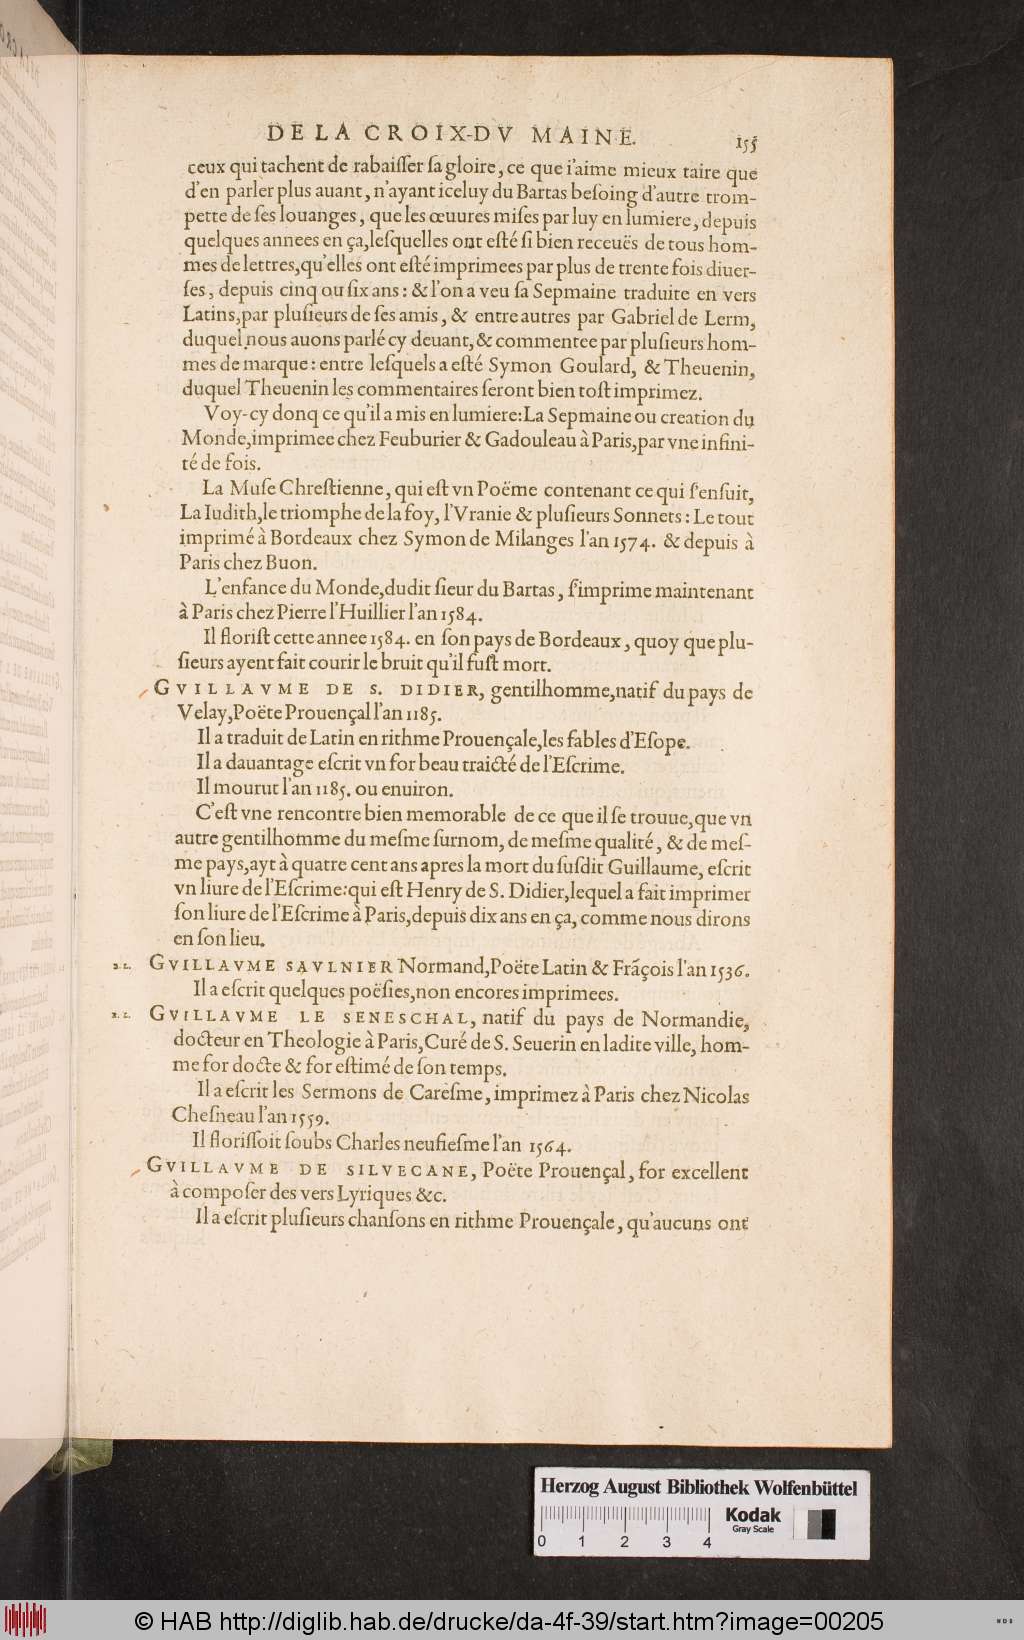 DE LA CROIX-DV MAINE. 155
ceux qui tachent de rabaisser ſa gloire, ce que i'aime mieux taire que
d'en parler plus auant, n'ayant iceluy du Bartas beſoing d'autre trom-
pette de ſes louanges, que les œuures miſes par luy en lumiere, depuis
quelques annees en ça,leſquelles ont eſté ſi bien receuës de tous hom-
mes de lettres,qu'elles ont eſté imprimees par plus de trente fois diuer-
ſes, depuis cinq ou ſix ans: & l'on a veu ſa Sepmaine traduite en vers
Latins,par pluſieurs de ſes amis, & entre autres par Gabriel de Lerm,
duquel nous auons parlé cy deuant, & commentee par pluſieurs hom-
mes de marque: entre leſquels a eſté Symon Goulard, & Theuenin,
duquel Theuenin les commentaires ſeront bien toſt imprimez.
Voy-cy donq ce qu'il a mis en lumiere:La Sepmaine ou creation du
Monde,imprimee chez Feuburier & Gadouleau à Paris,par vne infini-
té de fois.
La Muſe Chreſtienne, qui eſt vn Poëme contenant ce qui ſ'enſuit,
La Iudith,le triomphe de la foy, l'Vranie & pluſieurs Sonnets: Le tout
imprimé à Bordeaux chez Symon de Milanges l'an 1574. & depuis à
Paris chez Buon.
L'enfance du Monde,dudit ſieur du Bartas, ſ'imprime maintenant
à Paris chez Pierre l'Huillier l'an 1584.
Il floriſt cette annee 1584. en ſon pays de Bordeaux, quoy que plu-
ſieurs ayent fait courir le bruit qu'il fuſt mort.
GVILLAVME DE S. DIDIER, gentilhomme,natif du pays de
Velay,Poëte Prouençal l'an 1185.
Il a traduit de Latin en rithme Prouençale,les fables d'Eſope.
Il a dauantage eſcrit vn for beau traicté de l'Eſcrime.
Il mourut l'an 1185. ou enuiron.
C'eſt vne rencontre bien memorable de ce que il ſe trouue,que vn
autre gentilhomme du meſme ſurnom, de meſme qualité, & de meſ-
me pays,ayt à quatre cent ans apres la mort du ſuſdit Guillaume, eſcrit
vn liure de l'Eſcrime:qui eſt Henry de S. Didier,lequel a fait imprimer
ſon liure de l'Eſcrime à Paris,depuis dix ans en ça, comme nous dirons
en ſon lieu.
GVILLAVME SAVLNIER Normand,Poëte Latin & Frãçois l'an 1536.
Il a eſcrit quelques poëſies,non encores imprimees.
GVILLAVME LE SENESCHAL, natif du pays de Normandie,
docteur en Theologie à Paris,Curé de S. Seuerin en ladite ville, hom-
me for docte & for eſtimé de ſon temps.
Il a eſcrit les Sermons de Careſme, imprimez à Paris chez Nicolas
Cheſneau l'an 1559.
Il floriſſoit ſoubs Charles neufieſme l'an 1564.
GVILLAVME DE SILVECANE, Poëte Prouençal, for excellent
à compoſer des vers Lyriques &c.
Il a eſcrit pluſieurs chanſons en rithme Prouençale, qu'aucuns ont
Herzog August Bibliothek Wolfenbüttel
Kodak
Gray Scale
0 1 2 3 4
© HAB http://diglib.hab.de/drucke/da-4f-39/start.htm?image=00205